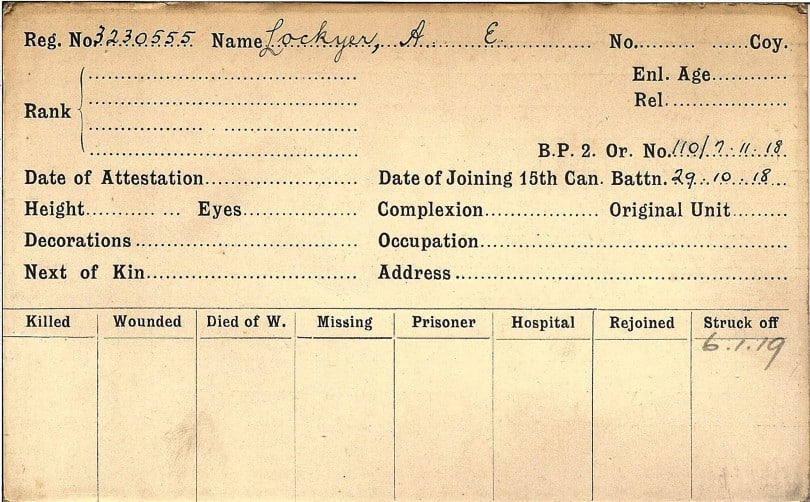 Reg. No. 3230555 Name Lockyer, A E. No. Coy.
Enl. Age
Rel.
Rank
B.P. 2. Or. No. 110/7.11.18
Date of Attestation Date of Joining 15th Can. Battn. 29.10.18
Height Eyes Complexion Original Unit
Decorations Occupation
Next of Kin Address
Killed Wounded Died of W. Missing Prisoner Hospital Rejoined Struck off
6.1.19